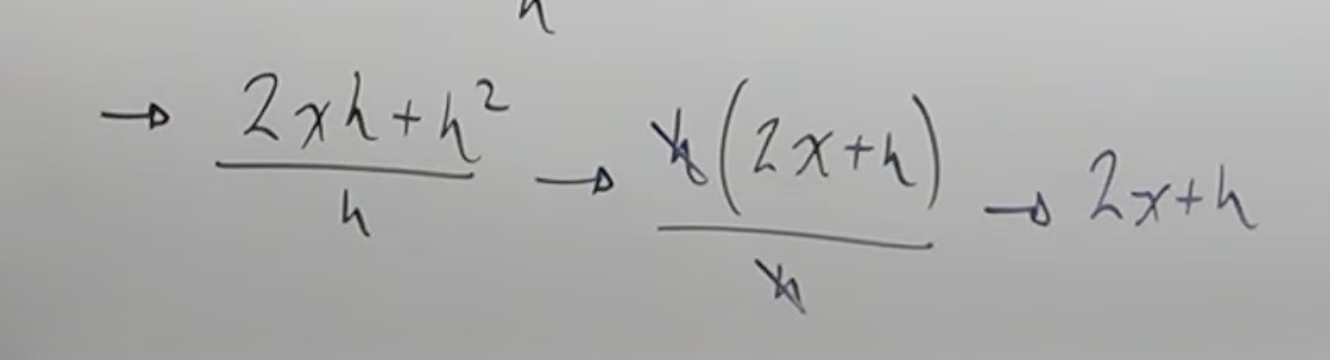 h
→ 2xh+h² / h → h(2x+h) / h → 2x+h